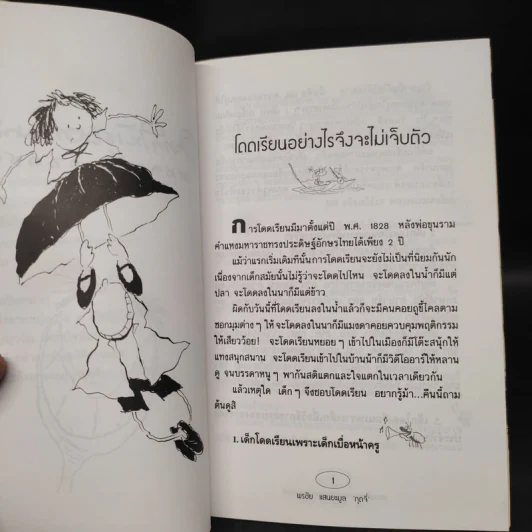 โดดเรียนอย่างไรจึงจะไม่เจ็บตัว
การโดดเรียนมีมาตั้งแต่ปี พ.ศ. 1828 หลังพ่อขุนราม
คำแหงมหาราชทรงประดิษฐ์อักษรไทยได้เพียง 2 ปี
แม้ว่าแรกเริ่มเดิมทีนั้นการโดดเรียนจะยังไม่เป็นที่นิยมกันนัก
เนื่องจากเด็กสมัยนั้นไม่รู้ว่าจะโดดไปไหน จะโดดลงในน้ำก็มีแต่
ปลา จะโดดลงในนาก็มีแต่ข้าว
ผิดกับวันนี้ที่โดดเรียนลงในน้ำแล้วก็จะมีคนคอยถูขี้ไคลตาม
ซอกมุมต่างๆ ให้ จะโดดลงในนาก็มีแมงดาคอยควบคุมพฤติกรรม
ให้เสียวว้อย! จะโดดเรียนหยอยๆ เข้าไปในเมืองก็มีโต๊ะสนุ้กให้
แทงสนุกสนาน จะโดดเรียนเข้าไปในบ้านน้าก็มีวิดีโอเออาร์ให้หลาน
ดู จนบรรดาหนูๆ พากันสติแตกและใจแตกในเวลาเดียวกัน
แล้วเหตุใด เด็กๆ จึงชอบโดดเรียน อยากรู้ม้า...คืนนี้ถาม
ต้นดูสิ
1. เด็กโดดเรียนเพราะเด็กเบื่อหน้าครู
1
พรชัย แสนยะมูล กุดจี่